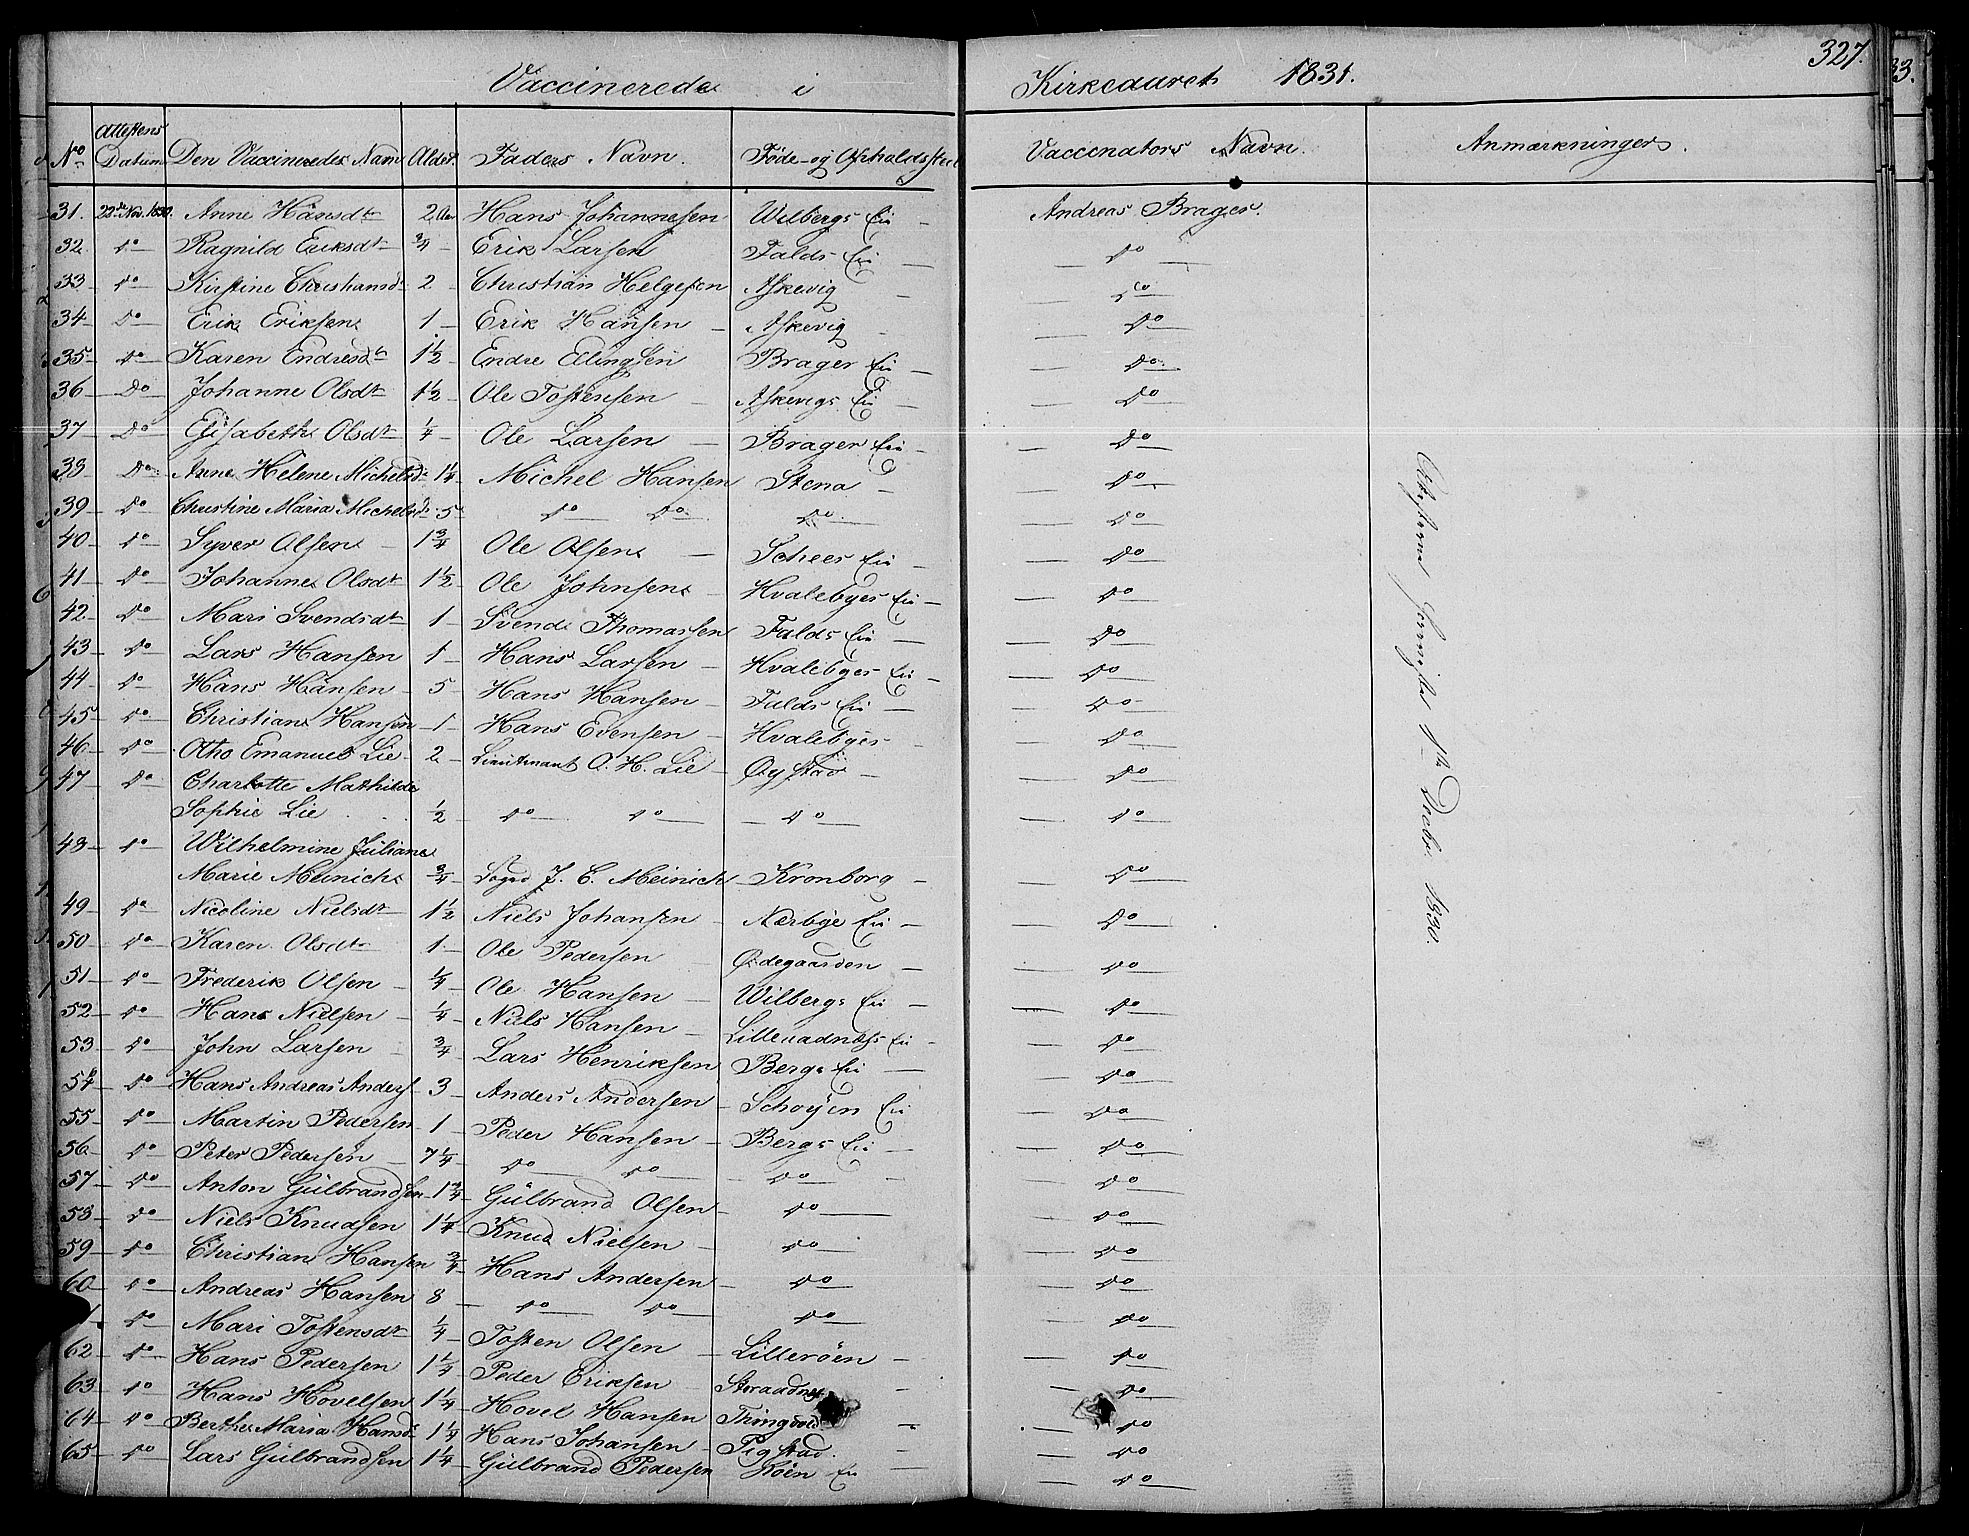 327.
Vaccinerede i Kirkeaaret 1831.
No Attestens Datum Den Vaccineredes Navn Alder. Faders Navn. Føde- og Opholdssted Vaccinators Navn. Anmærkninger.
31. 22de Nov. 1830. Anne Hansdtr 2 Aar Hans Johannesen Wilbergs Ei Andreas Brager.
32. Do Ragnild Eriksdtr 3/4 Erik Larsen Falds Ei Do
33 Do Kirstine Christiansdr 2 Christian Helgesen Askevig Do
34 Do Erik Eriksen 1 Erik Hansen Askevig Do
35 Do Karen Endresdtr 1 1/2 Endre Ellingsen Brager Ei Do
36 Do Johanne Olsdtr 1 1/2 Ole Tostensen Askevigs Ei Do
37 Do Elisabeth Olsdtr 1/4 Ole Larsen Brager Ei Do
38 Do Anne Helene Michelsd. 1 1/4 Michel Hansen Stena Do
39 Do Christine Maria Michelsd. 5 Do Do Do Do
40 Do Syver Olsen 1 3/4 Ole Olsen Schees Ei Do
41 Do Johanne Olsdtr 1 1/2 Ole Johnsen Hvalebyes Ei Do
42 Do Mari Svendsdtr 1 Svend Thomassen Falds Ei Do
43 Do Lars Hansen 1 Hans Larsen Hvalebyes Ei Do
44 Do Hans Hansen 5 Hans Hansen Falds Ei Do
45 Do Christian Hansen 1 Hans Evensen Hvalebyes Do
46 Do Otho Emanuel Lie 2 Lieutenant O. H. Lie Øystad Do
47 Do Charlotte Mathilde
Sophie Lie 1/2 Do Do Do Do
48 Do Wilhelmine Juliane
Marie Meinich 3/4 J. C. Meinich Kronborg Do
49 Do Nicoline Nielsdtr 1 1/2 Niels Johansen Nærbye Ei Do
50 Do Karen Olsdtr 1 Ole Pedersen Ødegaarden Do
51 Do Frederik Olsen 1/4 Ole Hansen Wilbergs Ei Do
52 Do Hans Nielsen 1/4 Niels Hansen Ei Do
53 Do John Larsen 3/4 Lars Henriksen Bergs Ei Do
54 Do Hans Andreas Anders 3 Anders Andersen Schøyen Ei Do
55 Do Martin Pedersen 1 Peder Hansen Bergs Ei Do
56 Do Peter Pedersen 7 1/4 Do Do Do Do
57 Do Anton Gulbrandsen 1 3/4 Gulbrand Olsen Do Do
58 Do Niels Knudsen 1 1/4 Knud Nielsen Do Do
59 Do Christian Hansen 3/4 Hans Andersen Do Do
60 Do Andreas Hansen 8 Do Do Do Do
1 Do Mari Tostensdtr 1/4 Tosten Olsen Lillerøen Do
62 Do Hans Pedersen 1 1/4 Peder Eriksen Do
63 Do Hans Hovelsen 1 1/4 Hovel Hansen Thingvold Do
64 Do Berthe Maria Hansd. 1 1/4 Hans Johansen Pigstad. Do
65 Do Lars Gulbrandsen 1 1/4 Gulbrand Pedersen Røen Ei Do
Decbr. 1830.